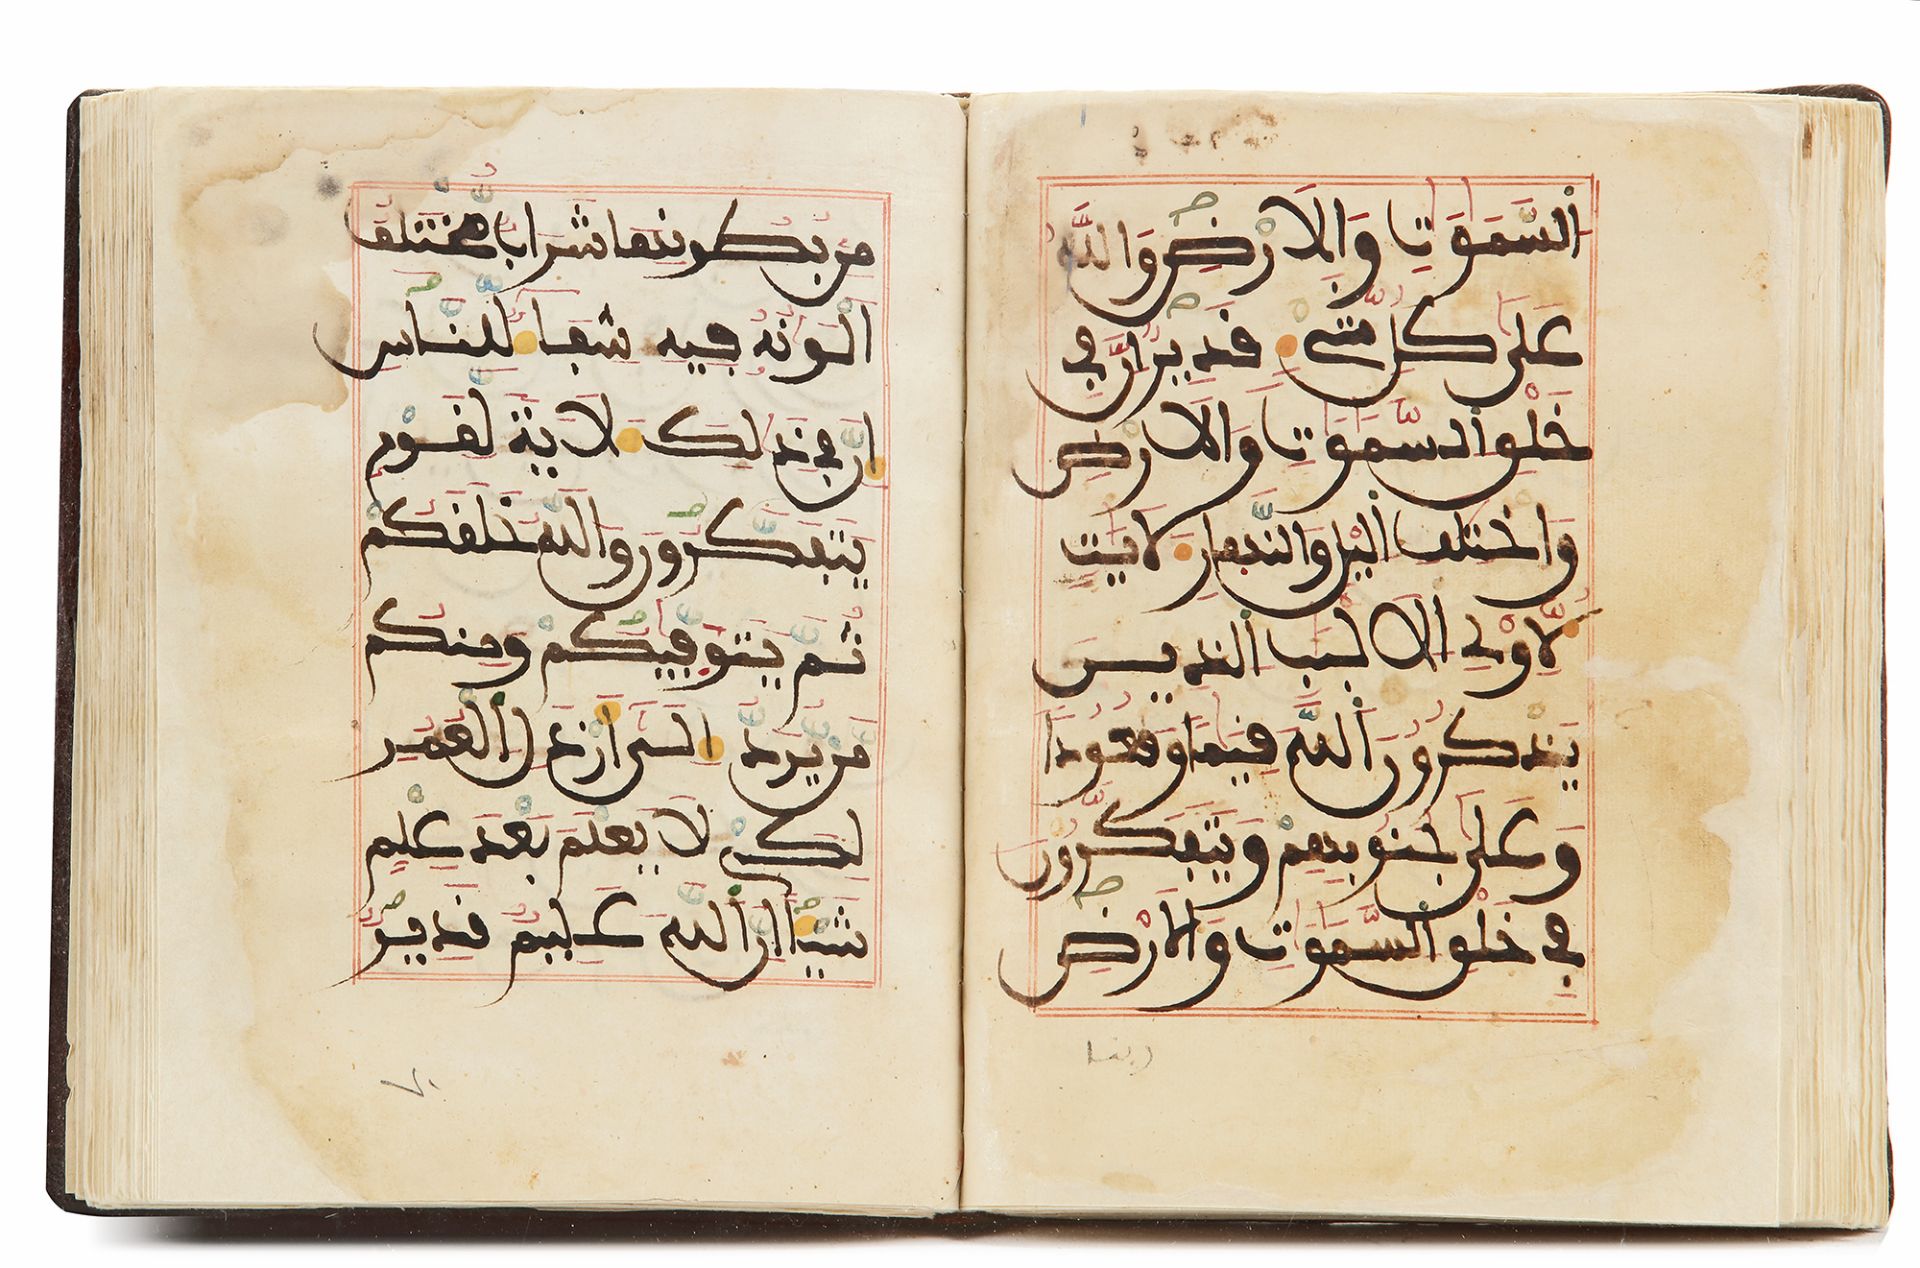 اَ۬لسَّمَٰوَٰتِ وَالَارْضِ وَاللَّهُ
عَلَىٰ كُلِّ شَےْءٖ قَدِيرٌ اِنَّ فِے
خَلْقِ اِ۬لسَّمَٰوَٰتِ وَالَارْضِ
وَاخْتِلَٰفِ اِ۬ليْلِ وَالنَّهِارِ لَأَيَٰتٖ
لِّأُوْلِے اِ۬لَالْبَٰبِ اِ۬لذِينَ
يَذْكُرُونَ اَ۬للَّهَ قِيَٰماٗ وَقُعُوداٗ
وَعَلَىٰ جُنُوبِهِمْ وَيَتَفَكَّرُونَ
فِے خَلْقِ اِ۬لسَّمَٰوَٰتِ وَالَارْضِ
ربنا
مِنۢ بُطُونِهَا شَرَابٞ مُّخْتَلِفٌ
اَلْوَٰنُهُۥ فِيهِ شِفَآءٞ لِّلنَّاسِ
إِنَّ فِے ذَٰلِكَ لَأٓيَةٗ لِّقَوْمٖ
يَتَفَكَّرُونَ وَاللَّهُ خَلَقَكُمْ
ثُمَّ يَتَوَفّۭيٰكُمْ وَمِنكُم
مَّنْ يُّرَدُّ إِلَىٰٓ أَرْذَلِ اِ۬لْعُمُرِ
لِكَےْ لَا يَعْلَمَ بَعْدَ عِلْمٖ
شَيْـٔاً اِنَّ اَ۬للَّهَ عَلِيمٞ قَدِيرٞ
٧٠